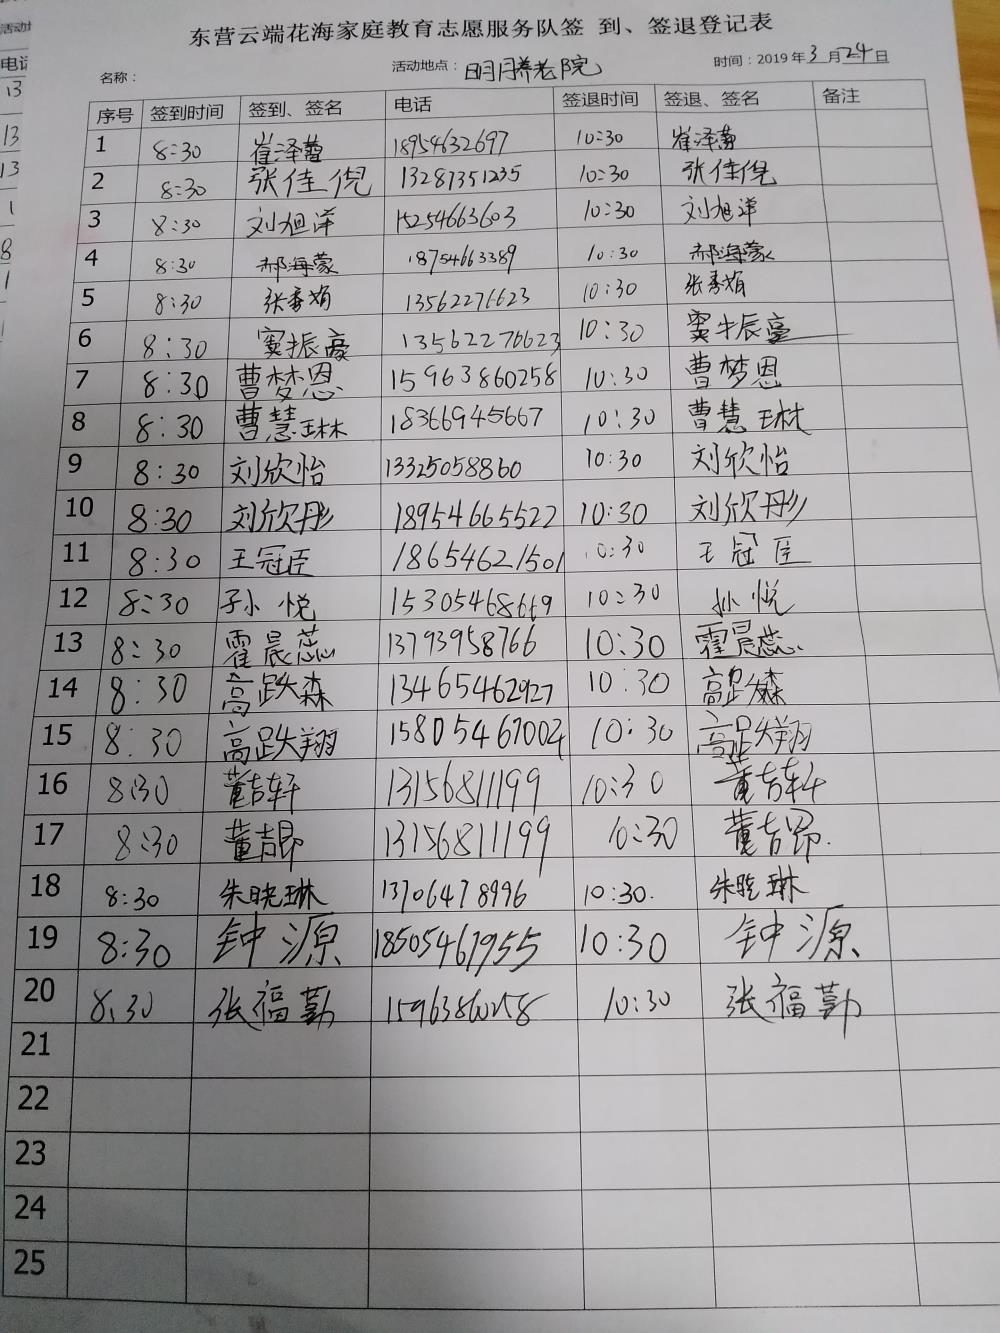 东营云端花海家庭教育志愿服务队签 到、签退登记表
名称： 活动地点：明月养老院 时间：2019年3月24日
序号 签到时间 签到、签名 电话 签退时间 签退、签名 备注
1 8:30 崔泽萱 18954632697 10:30 崔泽萱
2 8:30 张佳倪 13287351235 10:30 张佳倪
3 8:30 刘旭洋 15254663603 10:30 刘旭洋
4 8:30 郝海蒙 18754663389 10:30 郝海蒙
5 8:30 张秀娟 13562276623 10:30 张秀娟
6 8:30 窦振豪 13562276623 10:30 窦振豪
7 8:30 曹梦恩 15963860258 10:30 曹梦恩
8 8:30 曹慧琳 18366945667 10:30 曹慧琳
9 8:30 刘欣怡 13325058860 10:30 刘欣怡
10 8:30 刘欣彤 18954665522 10:30 刘欣彤
11 8:30 王冠臣 18654621501 10:30 王冠臣
12 8:30 孙悦 15305468669 10:30 孙悦
13 8:30 霍晨蕊 13793958766 10:30 霍晨蕊
14 8:30 高跃森 13465462927 10:30 高跃森
15 8:30 高跃翔 15805467002 10:30 高跃翔
16 8:30 董吉轩 13156811199 10:30 董吉轩
17 8:30 董吉昂 13156811199 10:30 董吉昂
18 8:30 朱晓琳 13706478996 10:30 朱晓琳
19 8:30 钟源 18505467955 10:30 钟源
20 8:30 张福勤 15963860258 10:30 张福勤
21
22
23
24
25